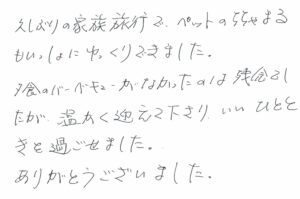 久しぶりの家族旅行で、ペットの
もいっしょにゆっくりできました。
夕食のバーベキューがなかったのは残念でし
たが、温かく迎えて下さり、いいひとと
きを過ごせました。
ありがとうございました。